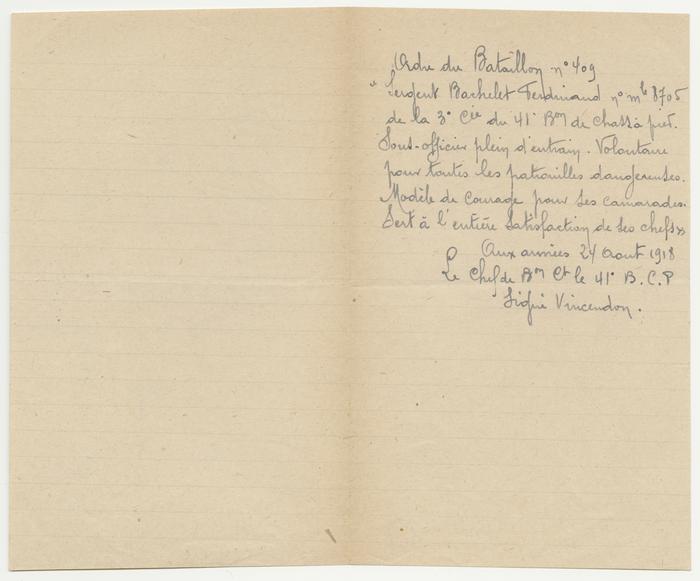 Ordre du Bataillon n° 409
" Sergent Bachelet Ferdinand n° mle 8705
de la 3e Cie du 41e Bon de Chass à pied.
Sous-officier plein d'entrain. Volontaire
pour toutes les patrouilles dangereuses.
Modèle de courage pour ses camarades.
Sert à l'entière satisfaction de ses chefs »
Aux armées 24 Aout 1918
Le Chef de Bon Ct le 41e B.C.P
Signé Vincendon.